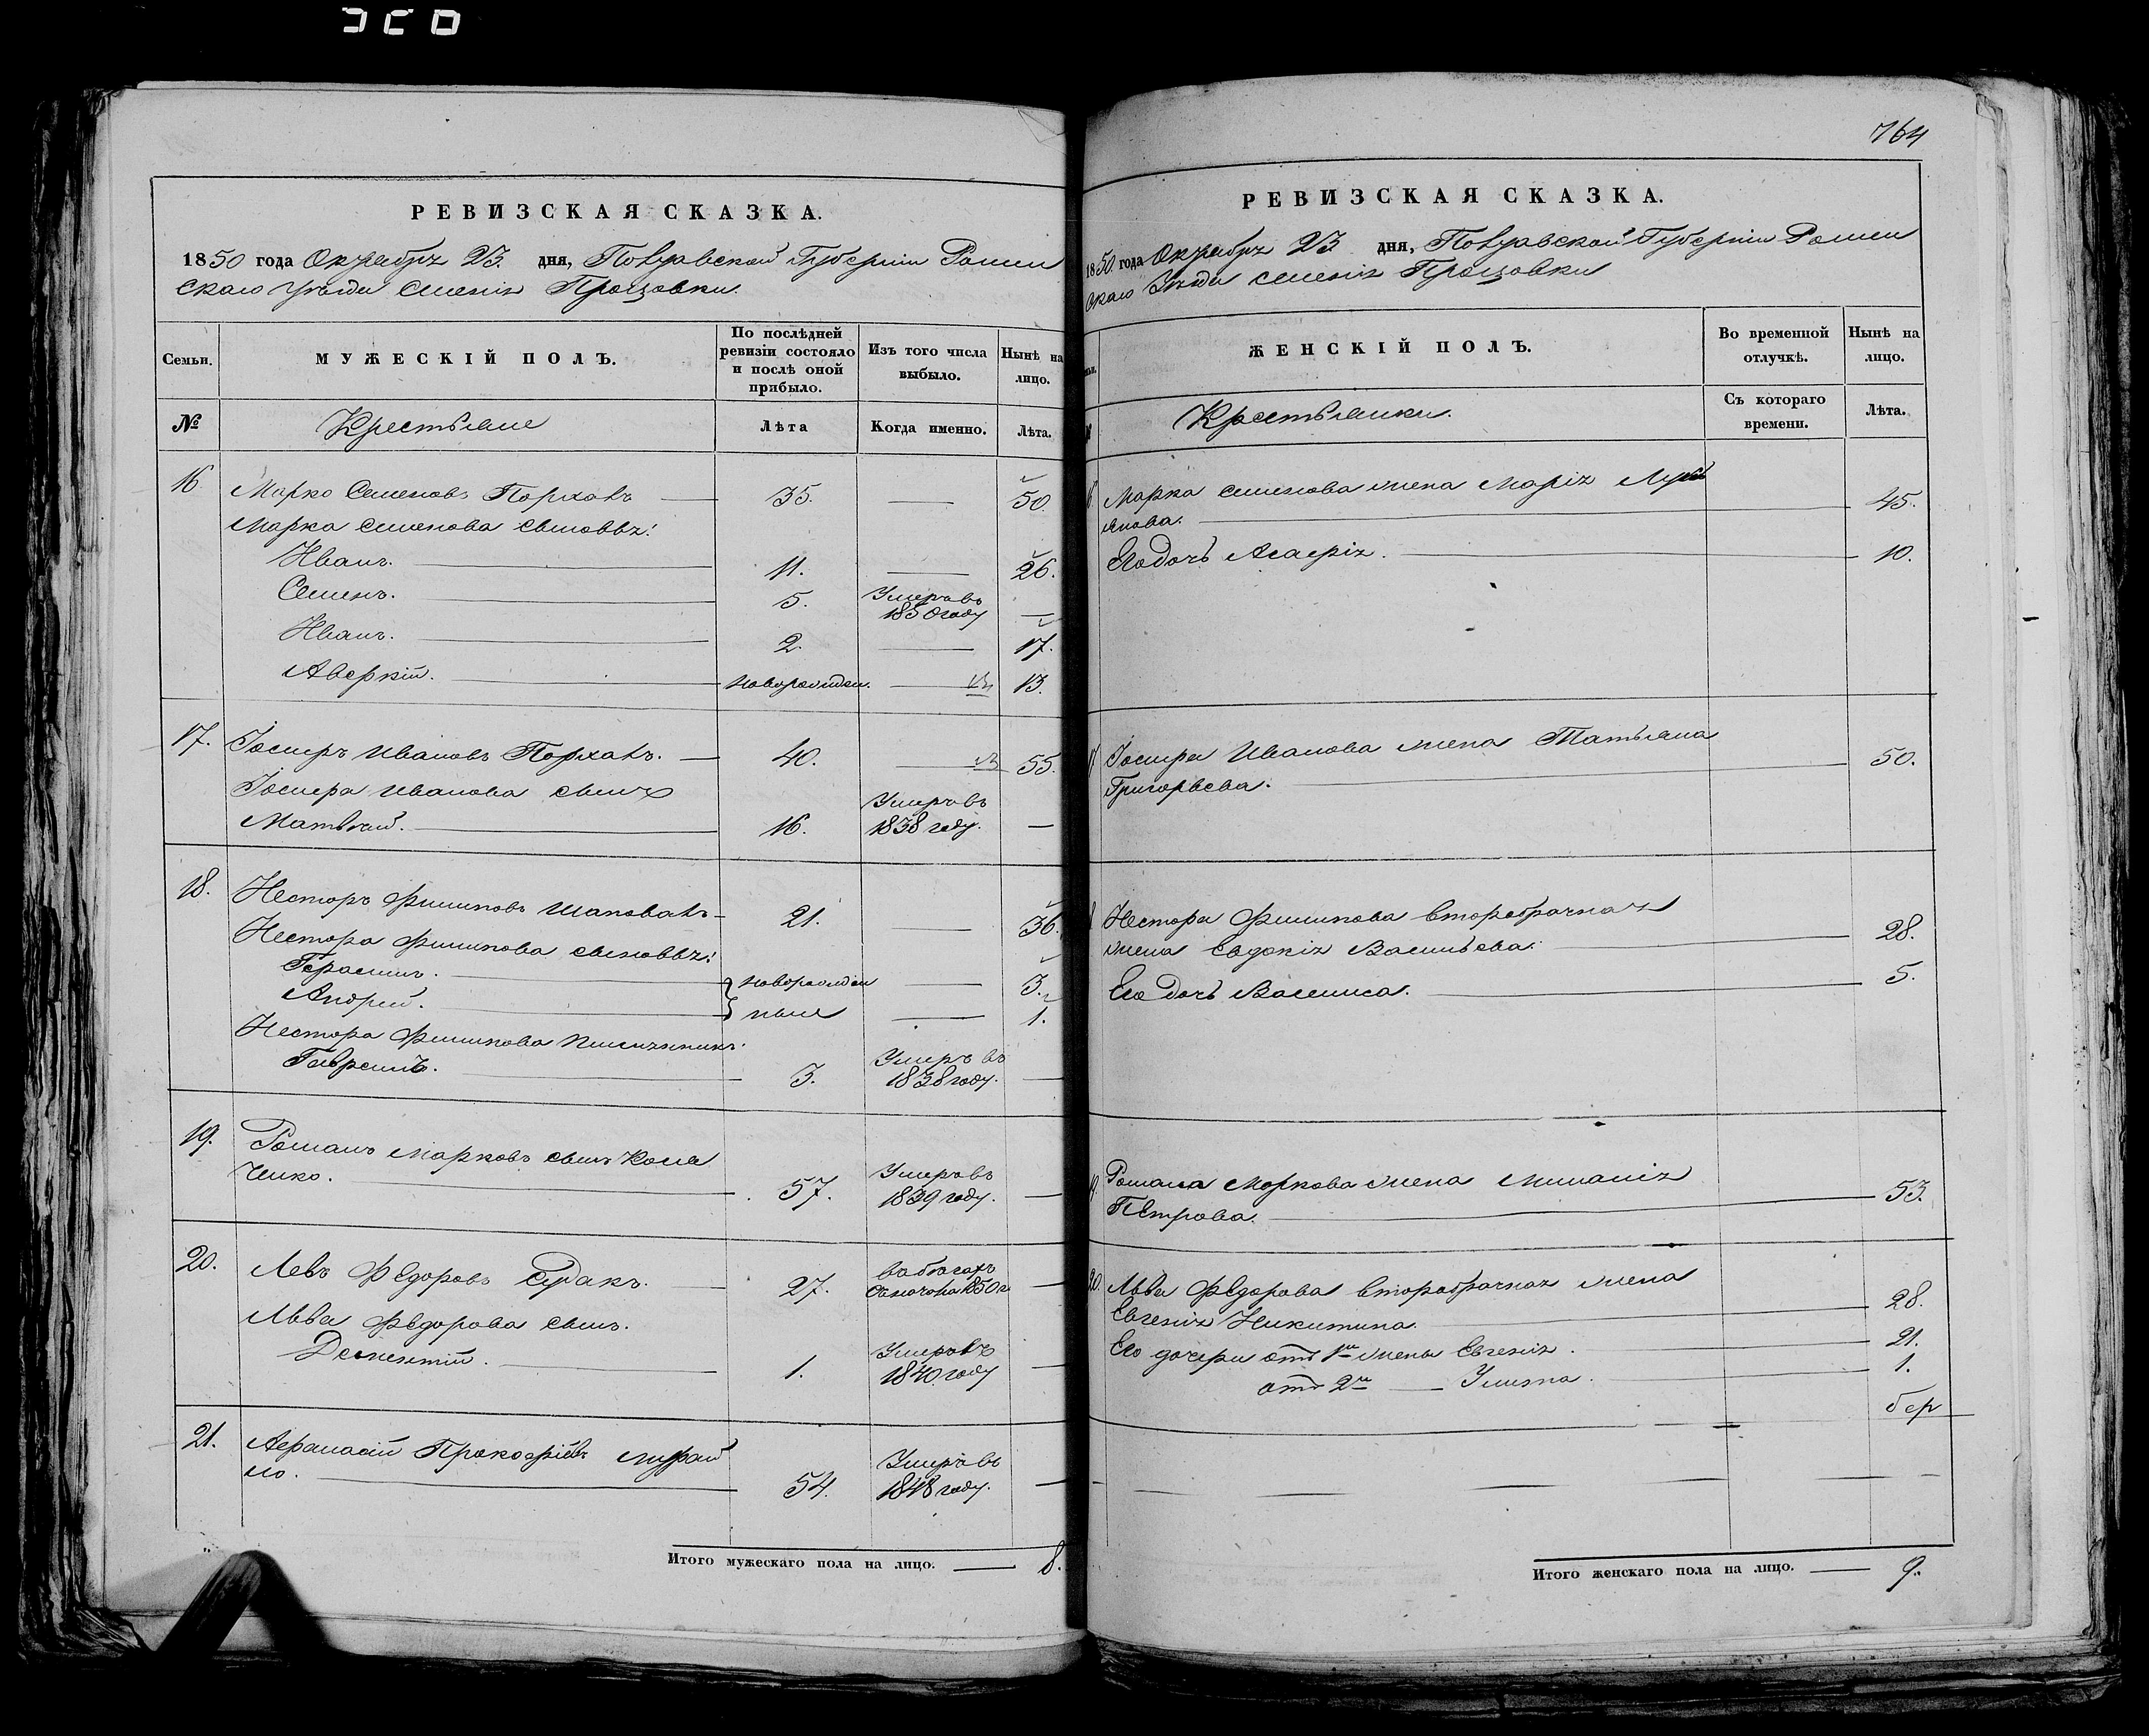 764
РЕВИЗСКАЯ СКАЗКА.
1850 года Октября 23. дня, Полтавской Губерніи Ромен
скаго уѣзда селенія
Семьи.
МУЖЕСКІЙ ПОЛЪ.
По послѣдней ревизіи состояло и послѣ оной прибыло.
Изъ того числа выбыло.
Нынѣ на лицо.
№
Крестьяне
Лѣта
Когда именно.
Лѣта.
16 Марко Семеновъ 35. 50.
Марка Семенова сыновья:
Иванъ. 11. 26.
Семенъ. 5. Умеръ въ 1850 году
Иванъ. 2. 17.
Аверкій. новорожден. 13.
17. Іосифъ Ивановъ 40. 55.
Іосифа Иванова сынъ
Матвѣй. 16. Умеръ въ 1838 году.
18. Несторъ Филиповъ Шаповалъ 21. 36.
Нестора Филипова сыновья:
Герасимъ. новорожден 3.
Андрей. ные 1.
Нестора Филипова племянникъ
Гаврилъ. 3. Умеръ въ 1838 году.
19. Романъ Марковъ сынъ
ченко. 57. Умеръ въ 1839 году.
20. Левъ Федоровъ 27. въ бѣгахъ 1850 г
Льва Федорова сынъ.
1. Умеръ въ 1840 году
21. Афанасій Прокофіевъ
ло. 54. Умеръ въ 1848 году.
Итого мужескаго пола на лицо. 8.
РЕВИЗСКАЯ СКАЗКА.
1850 года Октября 23 дня, Полтавской Губерніи Ромен
скаго Уѣзда селенія
ЖЕНСКІЙ ПОЛЪ.
Во временной отлучкѣ.
Нынѣ на лицо.
Крестьянки.
Съ котораго времени.
Лѣта.
Марка Семенова жена Марія
янова. 45.
Его дочь 10.
Іосифа Иванова жена Татьяна
Григорьева. 50.
Нестора Филипова второбрачная
жена Евдокія Васильева. 28.
Его дочь Василиса. 5.
19. Романа Маркова жена Миланія
Петрова. 53.
20. Льва Федорова второбрачная жена
Евгенія Никитина. 28.
Его дочери отъ 1й жены Евгенія. 21.
отъ 2й Улита. 1.
Итого женскаго пола на лицо. 9.